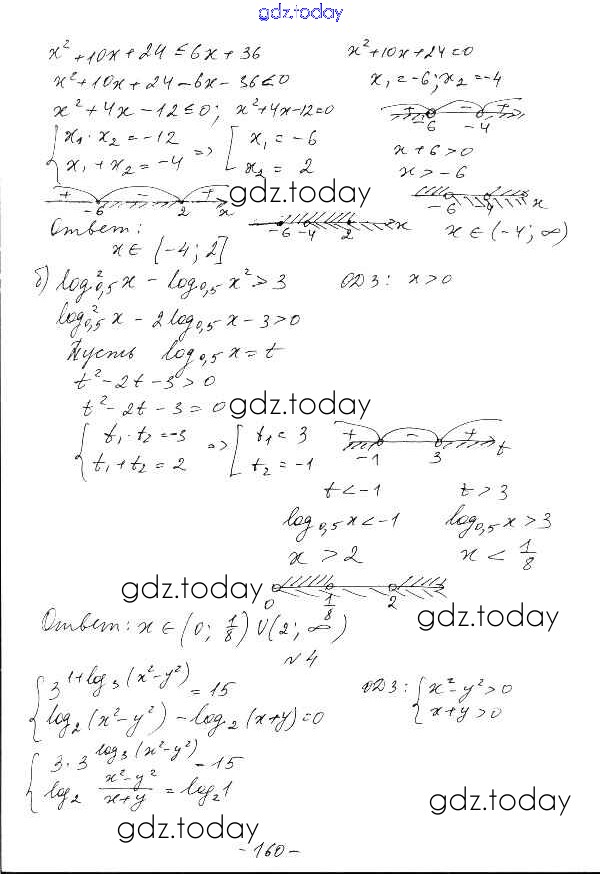 gdz.today
x²+10x+24≤6x+36    x²+10x+24=0
x²+10x+24-6x-36≤0    x₁=-6; x₂=-4
x²+4x-12≤0; x²+4x-12=0    + - +
{x₁·x₂=-12 => [x₁=-6    -6 -4
{x₁+x₂=-4    [x₂=2    x+6>0
x>-6
+ - +    gdz.today
-6 2 x    -6 -4 x
Ответ:    -6 -4 2 x    x∈(-4; ∞)
x∈(-4; 2]
б) log²₀,₅x - log₀,₅x²>3    ОДЗ: x>0
log²₀,₅x - 2log₀,₅x-3>0
Пусть log₀,₅x=t
t²-2t-3>0
t²-2t-3=0    gdz.today
{t₁·t₂=-3 => [t₁=3    + - +
{t₁+t₂=2    [t₂=-1    -1 3 t
t<-1    t>3
log₀,₅x<-1    log₀,₅x>3
x>2    x<1/8
gdz.today    0 1/8 2    gdz.today
Ответ: x∈(0; 1/8)∪(2; ∞)
№4
{3^(1+log₃(x²-y²))=15    ОДЗ: {x²-y²>0
{log₂(x²-y²)-log₂(x+y)=0    {x+y>0
{3·3^(log₃(x²-y²))=15
{log₂ (x²-y²)/(x+y)=log₂1
gdz.today    gdz.today
-160-